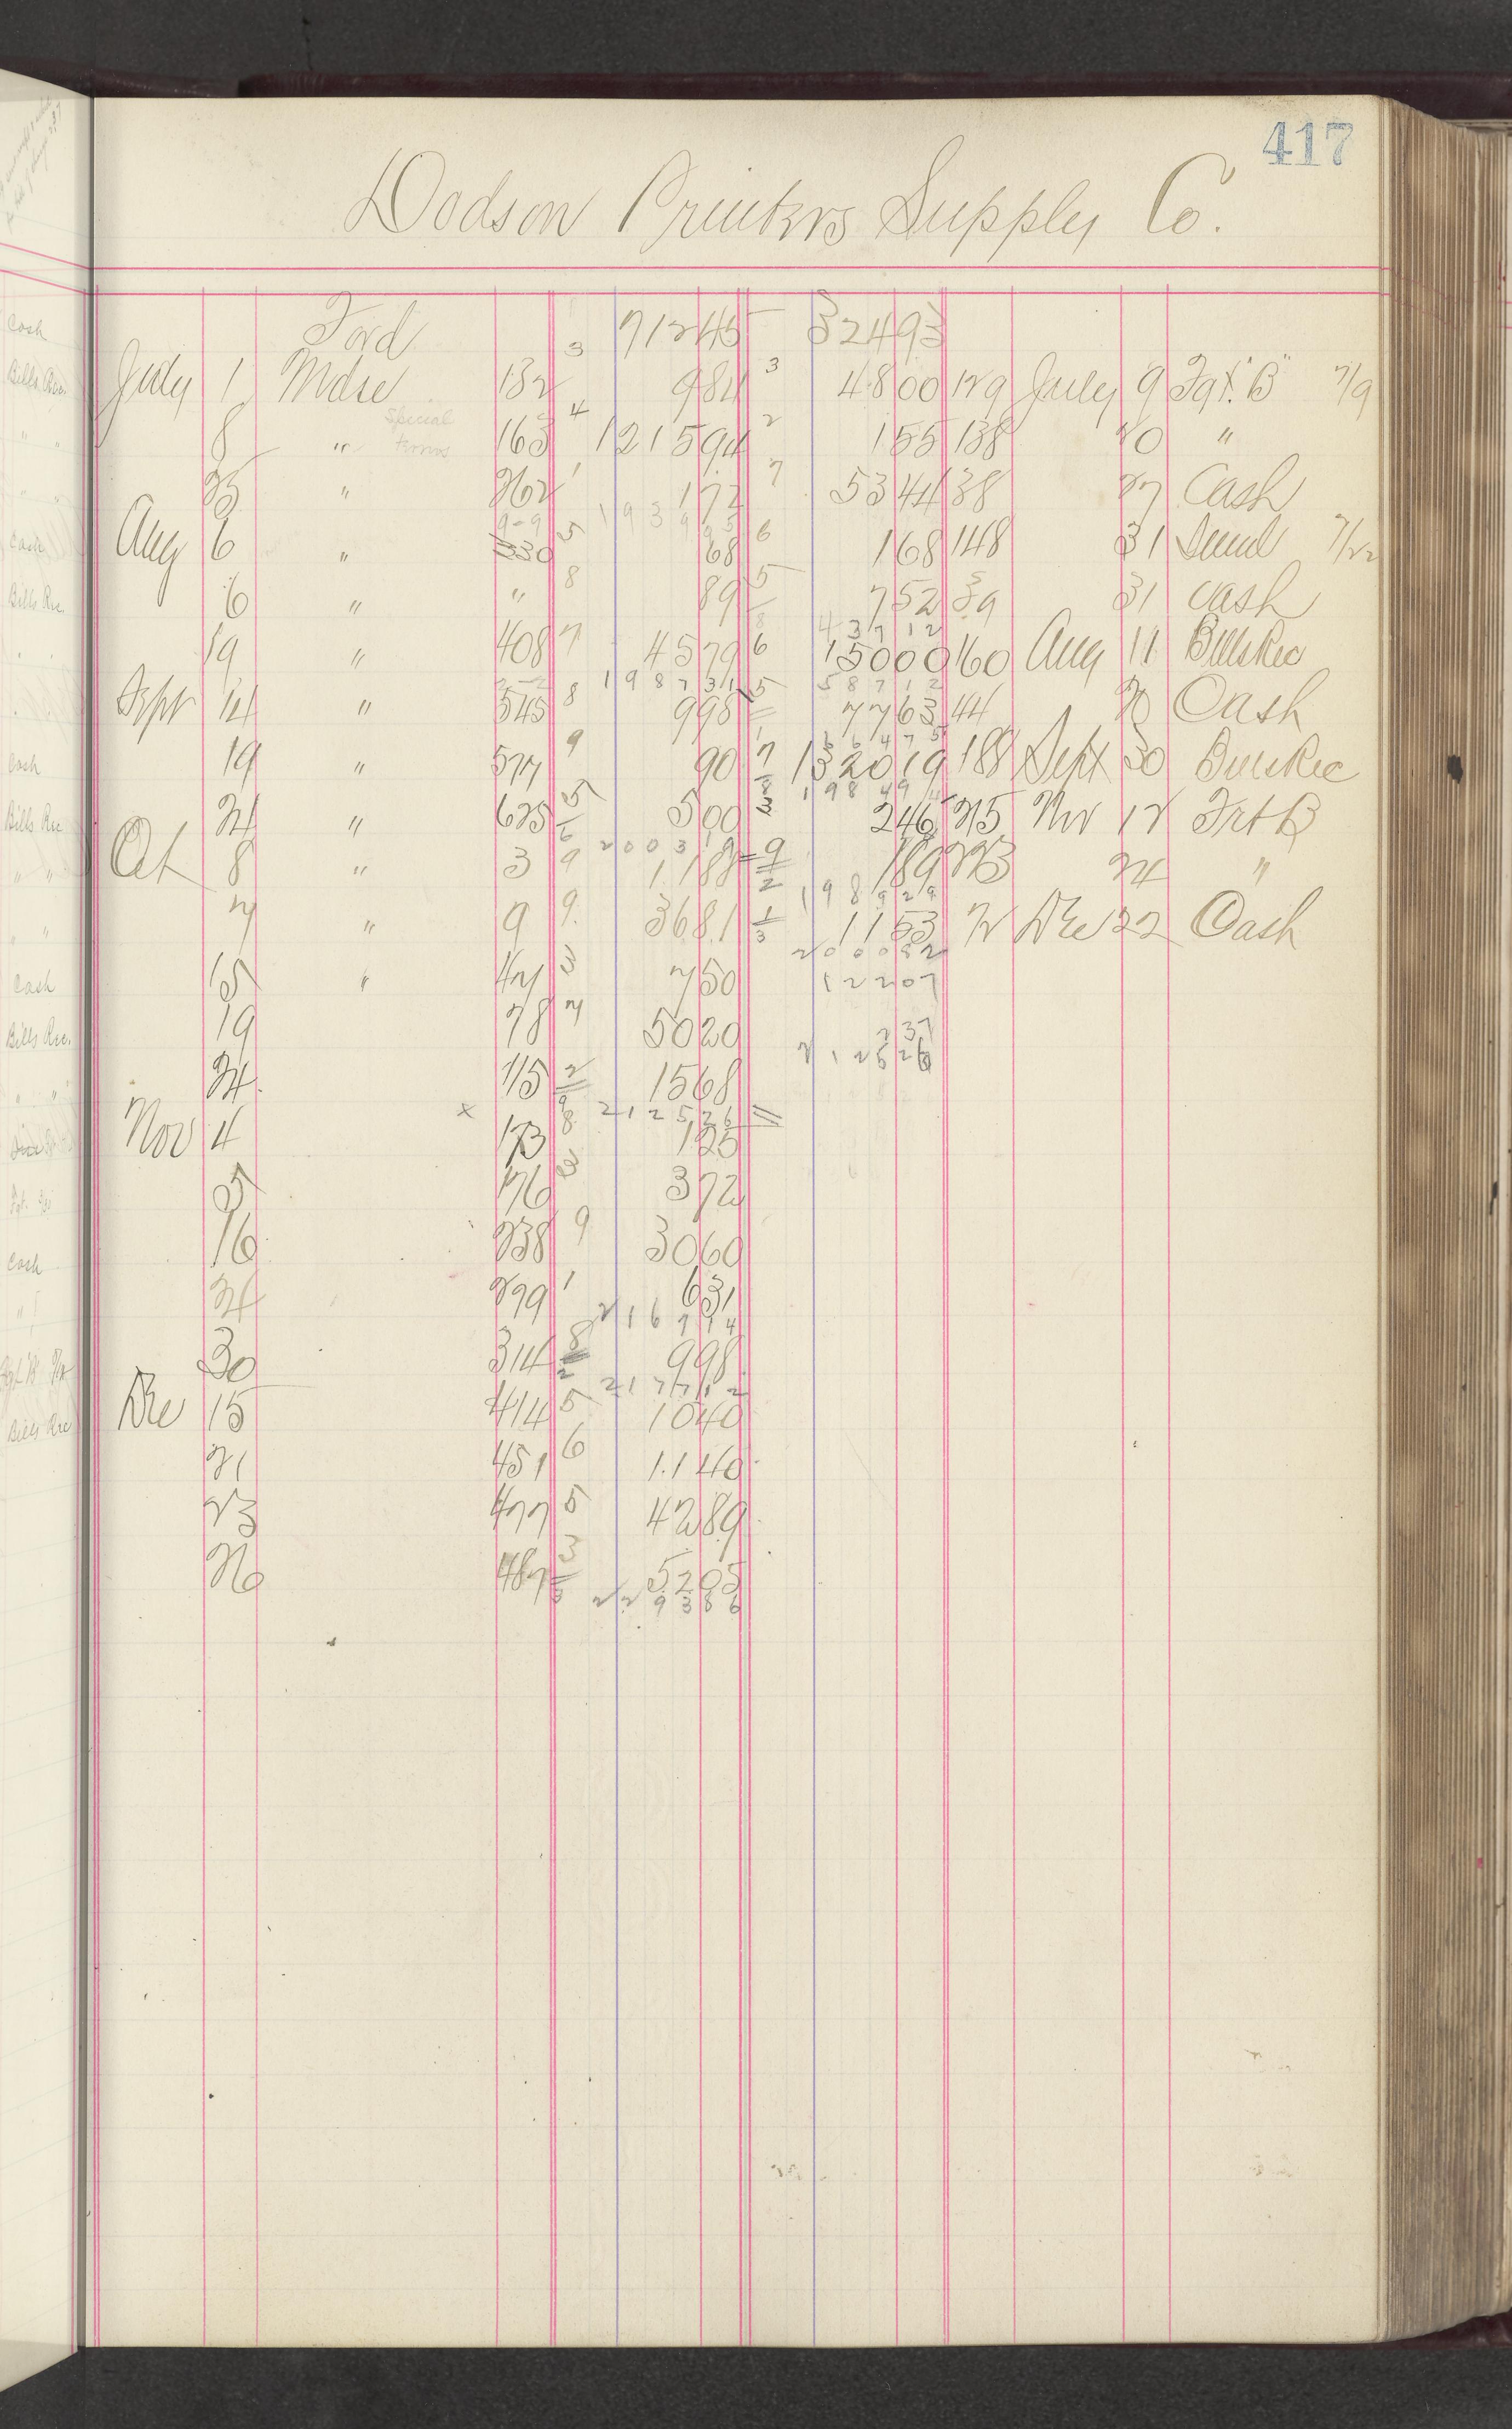 417
Dodson Printers Supply Co.
Ford 3 712 45 324 93
July 1 Mdse 132 9 84 3 48 00 129 July 9 7/9
8 " Special terms 163 4 1215 94 2 1 55 138 20 "
25 " 262 1 1 72 7 53 44 38 27 Cash
1939 95
Aug 6 " 330 5 68 6 1 68 148 31 7/22
6 " " 8 89 5 7 52 39 31 Cash
437 12
19 " 408 7 45 79 6 150 00 160 Aug 11 Bills Rec
1987 31 587 12
Sept 14 " 545 8 9 98 5 77 63 44 20 Cash
664 75
19 " 577 9 90 7 1320 19 188 Sept 30 Bills Rec
24 " 625 5 5 00 2 46 215 Nov 12 Frt B
2003 19
Oct 8 " 3 9 11 88 1 89 223 24 "
1989 29
7 " 9 9 36 81 11 53 72 Dec 22 Cash
2000 82
15 " 47 3 7 50 122 07
19 78 7 50 20 2 37
2125 26
24 115 2 15 68
x 2125 26
Nov 4 173 8 1 25
5 176 3 3 72
16 238 9 30 60
24 279 1 6 31
2167 14
30 314 8 9 98
2177 12
Dec 15 414 5 10 40
21 451 6 11 40
23 477 5 42 89
26 487 3 52 05
2293 86